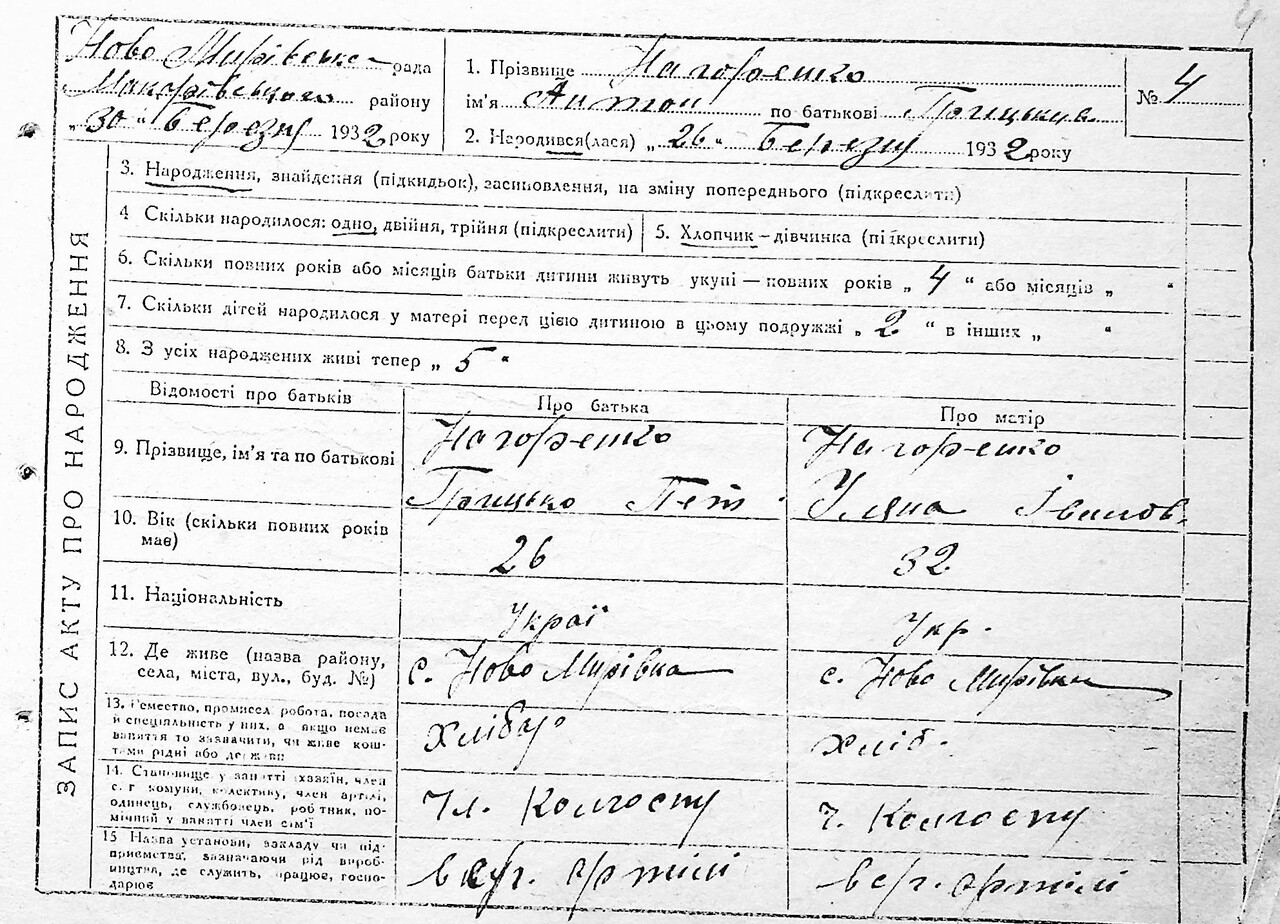 4
Ново Мирівська рада
Макарівського району
„30“ Березня 1932 року
1. Прізвище Нагорешко
ім'я Антон по батькові Грицьков
2. Народився(лася) „26“ Березня 1932 року
№ 4
ЗАПИС АКТУ ПРО НАРОДЖЕННЯ
3. Народження, знайдення (підкидьок), засиновлення, на зміну попереднього (підкреслити)
4 Скільки народилося: одно, двійня, трійня (підкреслити)
5. Хлопчик – дівчинка (підкреслити)
6. Скільки повних років або місяців батьки дитини живуть укупі — повних років „4“ або місяців „ “
7. Скільки дітей народилося у матері перед цією дитиною в цьому подружжі „2“ в інших „ “
8. З усіх народжених живі тепер „5“
Відомості про батьків
Про батька
Про матір
9. Прізвище, ім'я та по батькові
Нагорешко
Грицько Пет
Нагорешко
Уляна Іванов.
10. Вік (скільки повних років
має)
26
32
11. Національність
Украї
Укр.
12. Де живе (назва району,
села, міста, вул., буд. №)
с. Ново Мирівка
с. Ново Мирівка
13. Ремество, промисел, робота, посада
й спеціяльність у них, а якщо немає
заняття то зазначити, чи живе кош-
тами рідні або держави
Хлібар
Хліб.
14. Становище у занятті (хазяїн, член
с. г комуни, колективу, член артілі,
одинець, службовець, робітник, по-
мічний у занятті член сім'ї
Чл. Колгоспу
Ч. Колгоспу
15 Назва установи, закладу чи під-
приємства, зазначаючи від вироб-
ництва, де служить, працює, госпо-
дарює
артілі
артілі